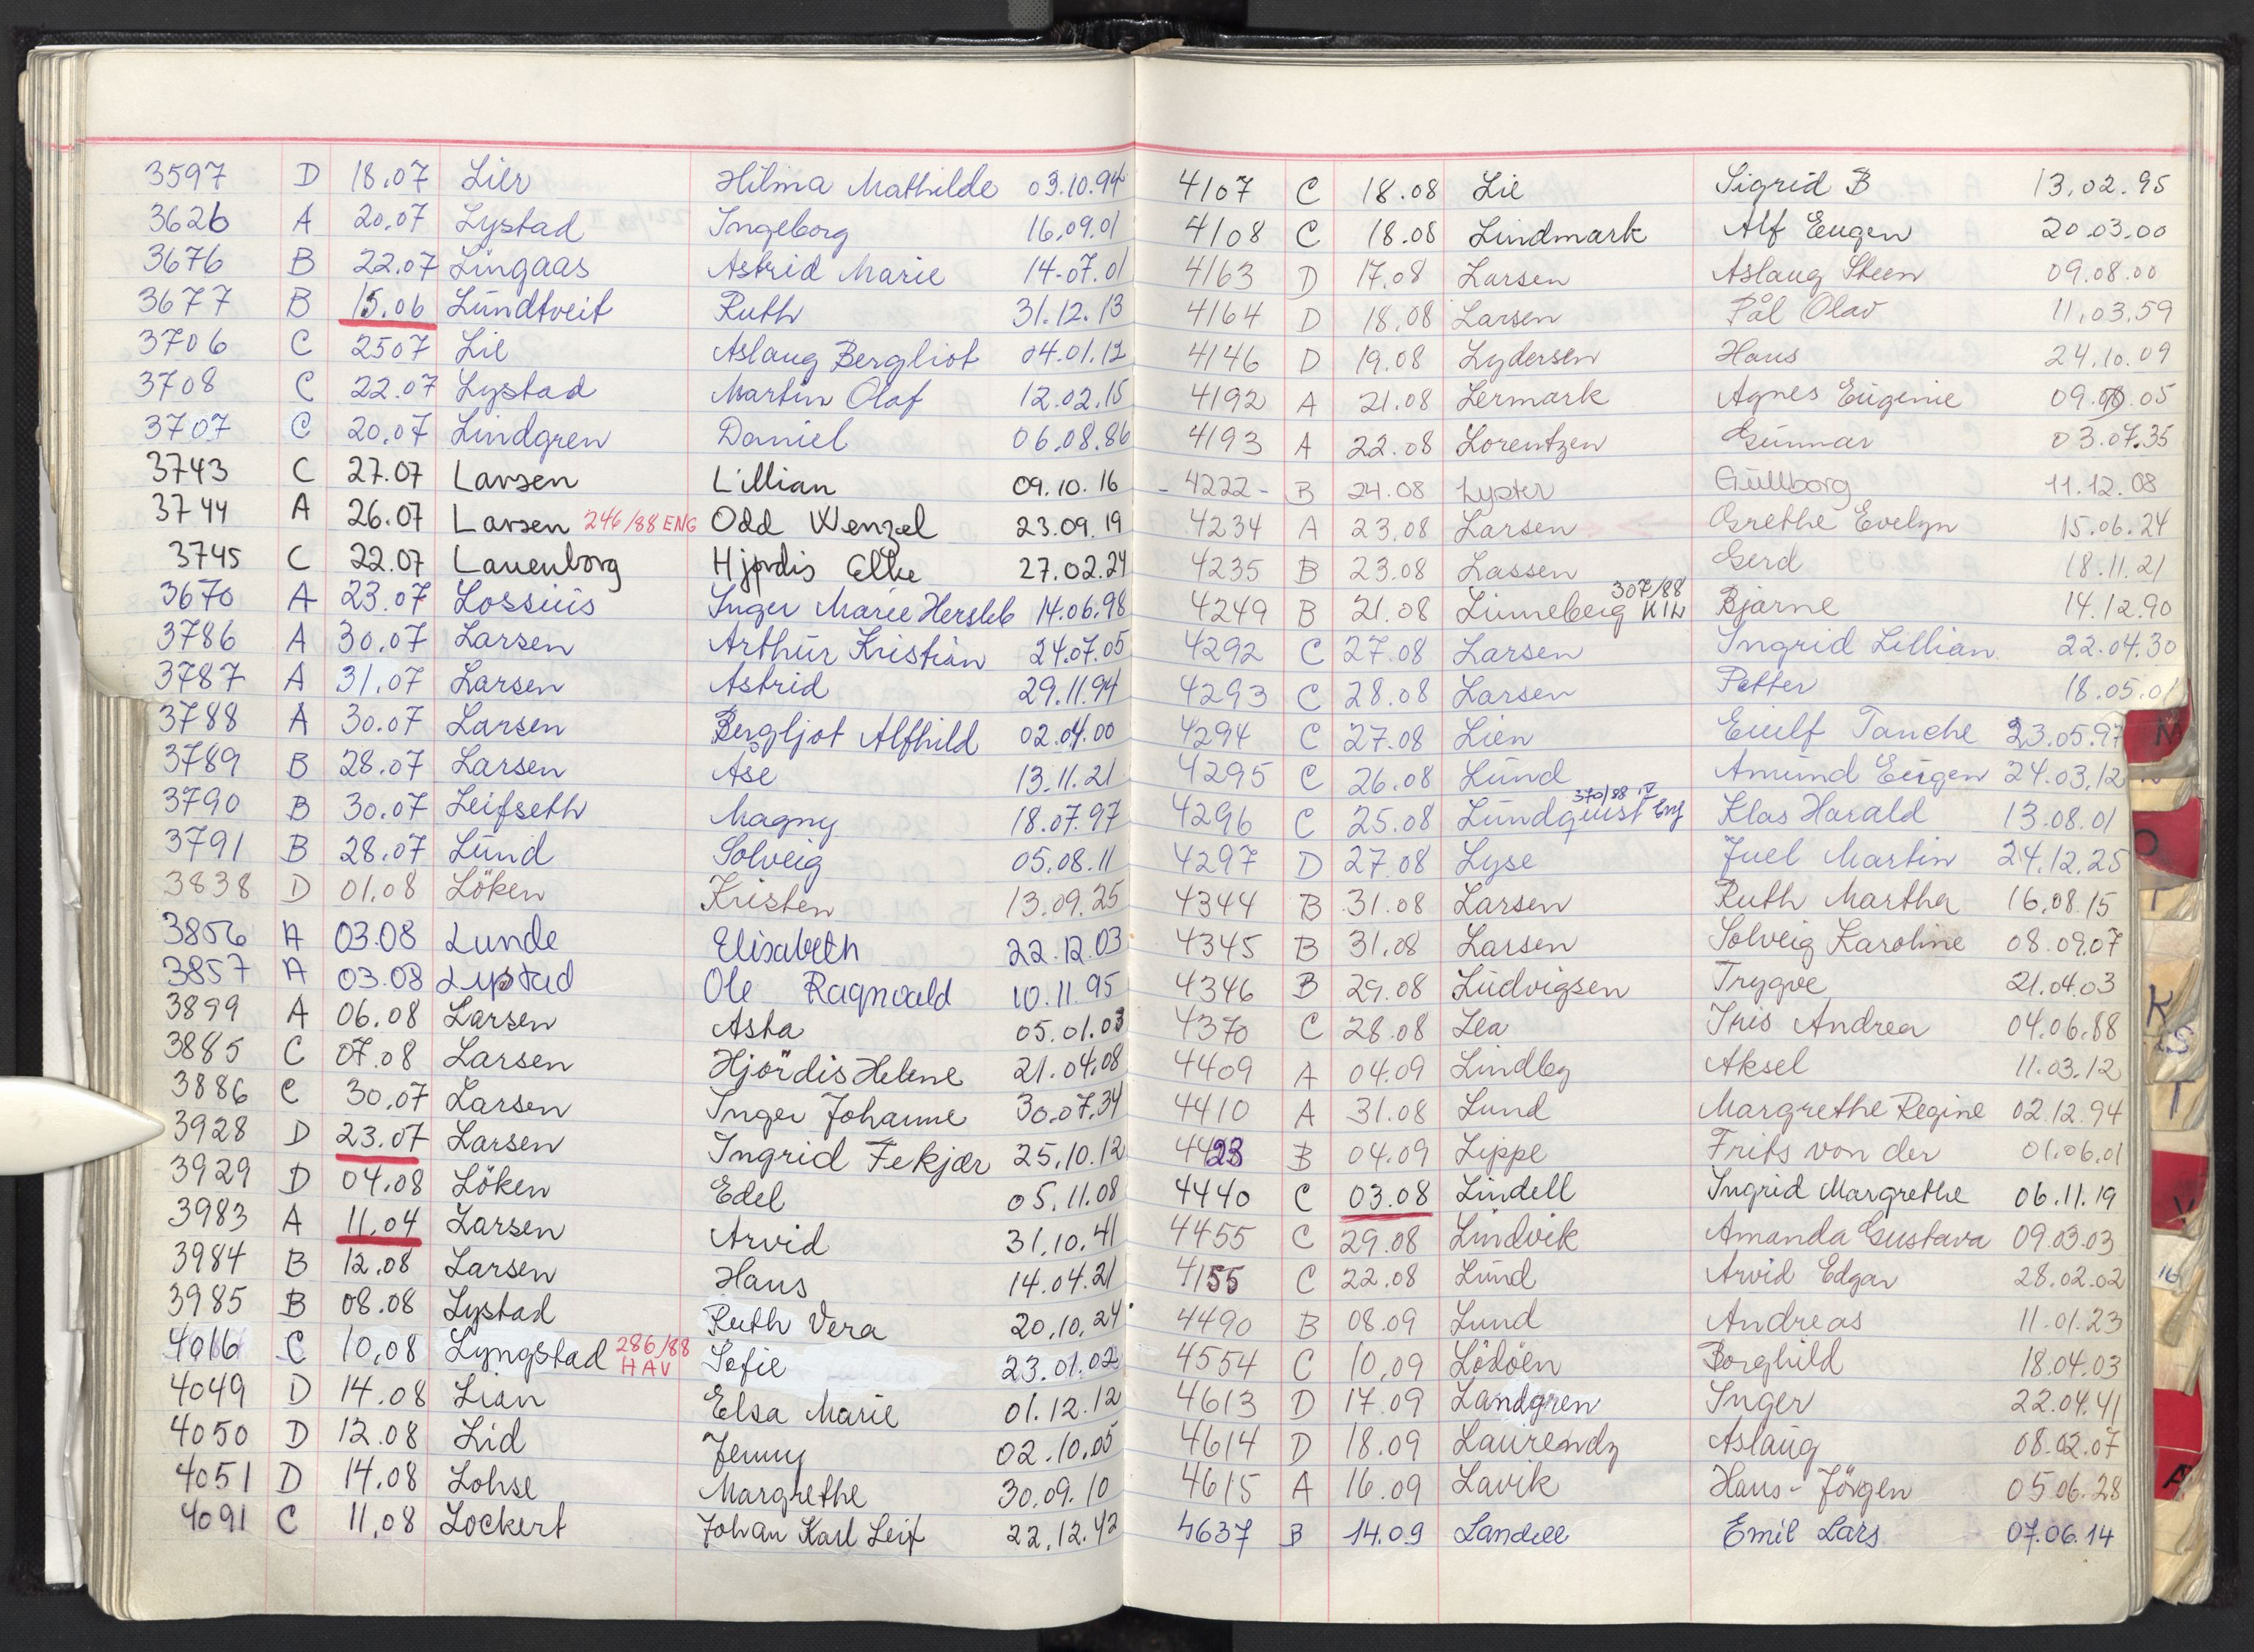 3597 D 18.07 Lier Hilma Mathilde 03.10.94
3626 A 20.07 Lystad Ingeborg 16.09.01
3676 B 22.07 Lingaas Astrid Marie 14.07.01
3677 B 15.06 Lundtveit Ruth 31.12.13
3706 C 2507 Lie Aslaug Bergliot 04.01.12
3708 C 22.07 Lystad Martin Olaf 12.02.15
3707 C 20.07 Lindgren Daniel 06.08.86
3743 C 27.07 Larsen Lillian 09.10.16
3744 A 26.07 Larsen 246/88 ENG Odd Wenzel 23.09.19
3745 C 22.07 Lauenborg Hjørdis Elke 27.02.24
3670 A 23.07 Lossius Inger Marie Hersleb 14.06.98
3786 A 30.07 Larsen Arthur Kristian 24.07.05
3787 A 31.07 Larsen Astrid 29.11.94
3788 A 30.07 Larsen Bergljot Alfhild 02.04.00
3789 B 28.07 Larsen Åse 13.11.21
3790 B 30.07 Leifseth Magny 18.07.97
3791 B 28.07 Lund Solveig 05.08.11
3838 D 01.08 Löken Kristen 13.09.25
3856 A 03.08 Lunde Elisabeth 22.12.03
3857 A 03.08 Lystad Ole Ragnvald 10.11.95
3899 A 06.08 Larsen Asta 05.01.03
3885 C 07.08 Larsen Hjördis Helene 21.04.08
3886 C 30.07 Larsen Inger Johanne 30.07.34
3928 D 23.07 Larsen Ingrid Fekjær 25.10.12
3929 D 04.08 Löken Edel 05.11.08
3983 A 11.04 Larsen Arvid 31.10.41
3984 B 12.08 Larsen Hans 14.04.21
3985 B 08.08 Lystad Ruth Vera 20.10.24
4016 C 10.08 Lyngstad 286/88 HAV Sofie 23.01.02
4049 D 14.08 Lian Elsa Marie 01.12.12
4050 D 12.08 Lid Jenny 02.10.05
4051 D 14.08 Lohse Margrethe 30.09.10
4091 C 11.08 Lockert Johan Karl Leif 22.12.42
4107 C 18.08 Lie Sigrid B 13.02.95
4108 C 18.08 Lindmark Alf Eugen 20.03.00
4163 D 17.08 Larsen Aslaug Steen 09.08.00
4164 D 18.08 Larsen Pål Olav 11.03.59
4146 D 19.08 Lydersen Hans 24.10.09
4192 A 21.08 Lermark Agnes Eugenie 09. .05
4193 A 22.08 Lorentzen Gunnar 03.07.35
- 4222 - B 24.08 Lyster Gullborg 11.12.08
4234 A 23.08 Larsen Grethe Evelyn 15.06.24
4235 B 23.08 Lassen Gerd 18.11.21
4249 B 21.08 Linneberg 307/88 KIN Bjarne 14.12.90
4292 C 27.08 Larsen Ingrid Lillian 22.04.30
4293 C 28.08 Larsen Petter 18.05.01
4294 C 27.08 Lien Eiulf Tanche 23.05.97
4295 C 26.08 Lund Amund Eugen 24.03.12
4296 C 25.08 Lundquist 370/88 IV Eng Klas Harald 13.08.01
4297 D 27.08 Lyse Juel Martin 24.12.25
4344 B 31.08 Larsen Ruth Martha 16.08.15
4345 B 31.08 Larsen Solveig Karoline 08.0907
4346 B 29.08 Ludvigsen Trygve 21.04.03
4370 C 28.08 Lea Iris Andrea 04.06.88
4409 A 04.09 Lindbg Aksel 11.03.12
4410 A 31.08 Lund Margrethe Regine 02.12.94
4423 B 04.09 Lippe Frits von der 01.06.01
4440 C 03.08 Lindell Ingrid Margrethe 06.11.19
4455 C 29.08 Lundvik Amanda Gustava 09.03.03
4155 C 22.08 Lund Arvid Edgar 28.02.02
4490 B 08.09 Lund Andreas 11.01.23
4554 C 10.09 Lödöen Borghild 18.04.03
4613 D 17.09 Landgren Inger 22.04.41
4614 D 18.09 Laurendz Aslaug 08.02.07
4615 A 16.09 Lavik Hans-Jörgen 05.06.28
4637 B 14.09 Landell Emil Lars 07.06.14
N
O
K
S
T
V
16
A